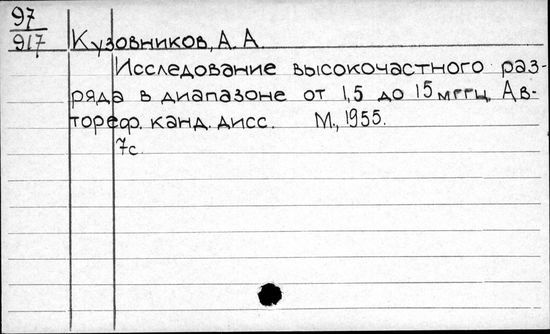 97
917 Кузовников, А. А.
Исследование высокочастного раз-
ряда в диапазоне от 1,5 до 15 мггц. Ав-
тореф. канд. дисс. М., 1955.
7с.